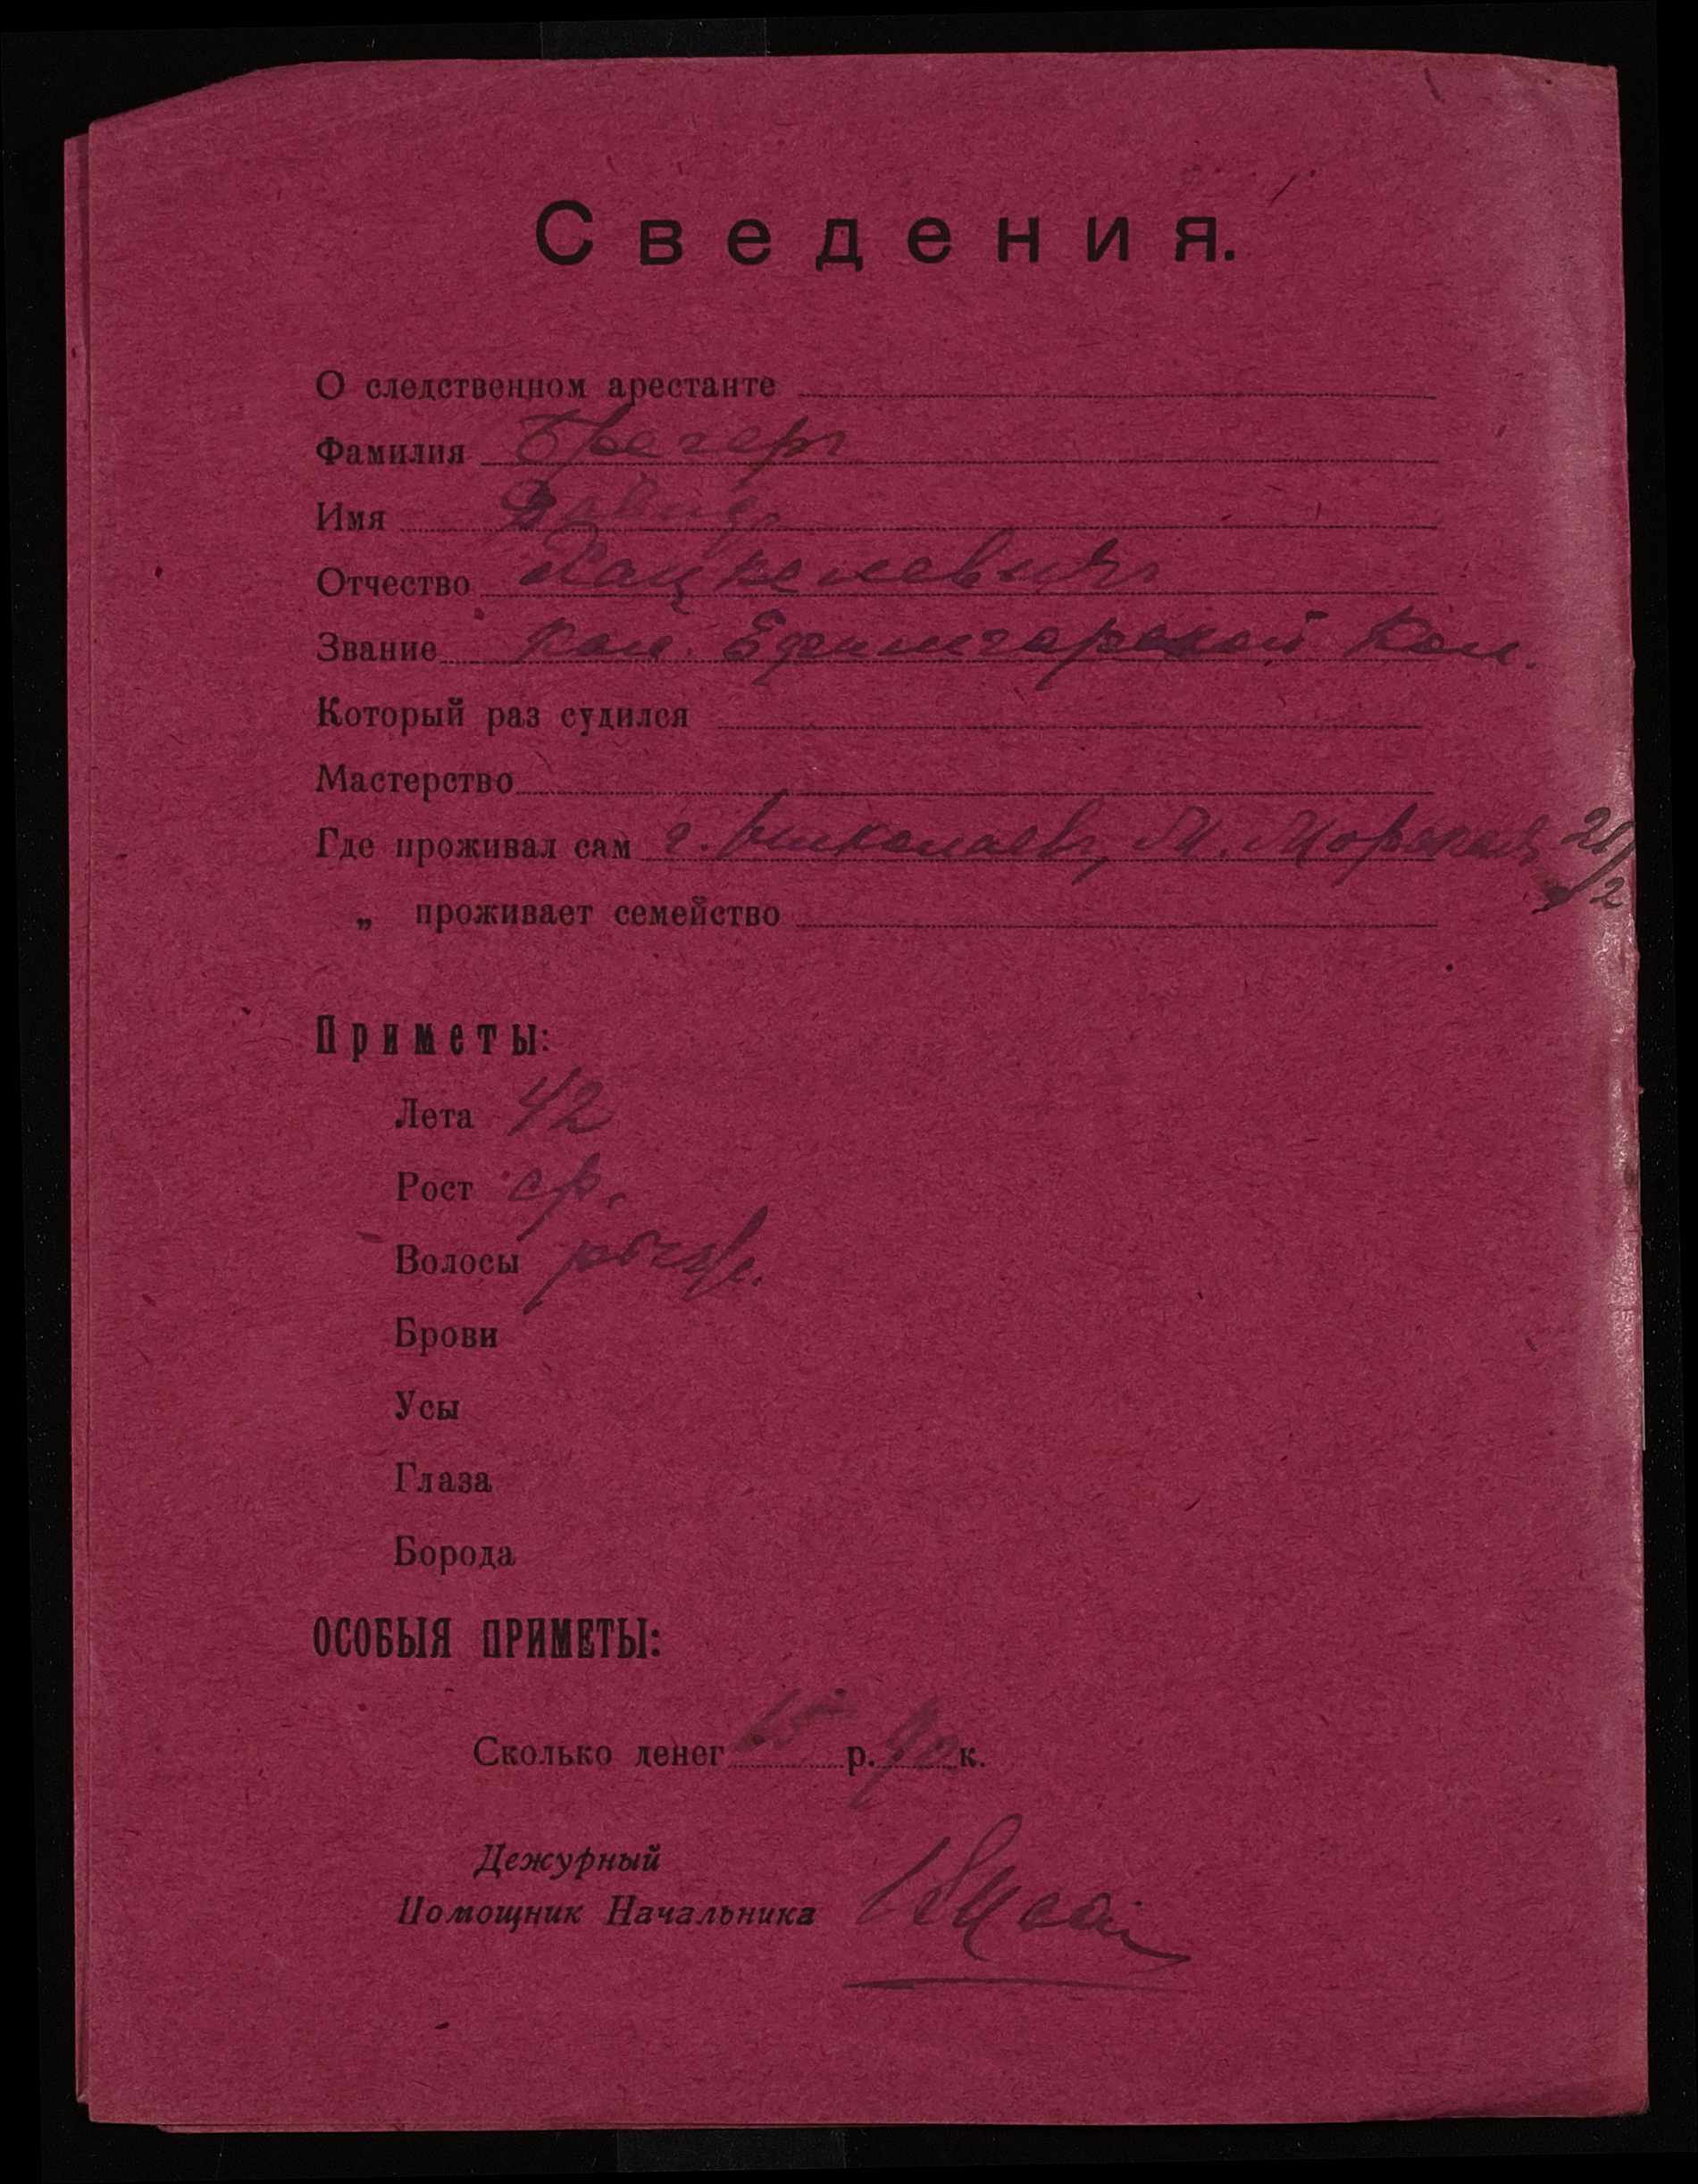 Сведения.
О следственном арестанте
Фамилия Брегеръ
Имя Давидъ
Отчество Хацкелевичъ
Звание кол. Ефингарской кол.
Который раз судился
Мастерство
Где проживал сам г. Николаевъ, М. Морская,
„ проживает семейство
Приметы:
Лета 42
Рост ср.
Волосы
Брови
Усы
Глаза
Борода
ОСОБЫЯ ПРИМЕТЫ:
Сколько денег р. к.
Дежурный
Помощник Начальника